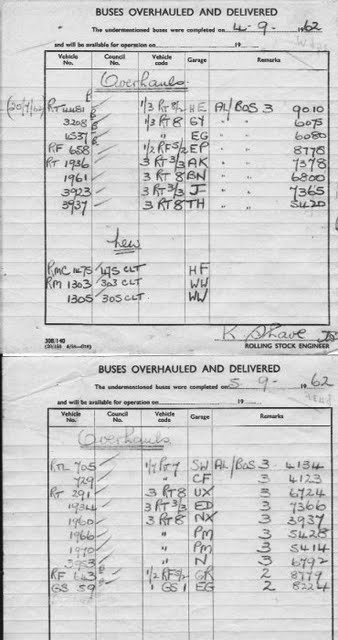 BUSES OVERHAULED AND DELIVERED
The undermentioned buses were completed on 4 . 9 . 1962
and will be available for operation on 19
Vehicle No. Council No. Vehicle code Garage Remarks
Overhauls
(20/7/62) RT 4481 B 1/3 RT 8/2 HE AL/BOS 3 9010
3208 B 1/3 RT 8 GY " " 6075
4537 B " EG " " 6080
RF 658 B 1/2 RF 5/2 EP " " 8775
RT 1936 3 RT 3/3 AK " " 7378
1961 3 RT 8 BN " " 6800
3923 3 RT 3/3 J " " 7365
3937 3 RT 8 TH " " 5420
New
RMC 1475 475 CLT HF
RM 1303 303 CLT WW
1305 305 CLT. WW
K Shave
ROLLING STOCK ENGINEER
BUSES OVERHAULED AND DELIVERED
The undermentioned buses were completed on 5 . 9 . 1962
and will be available for operation on 19
Vehicle No. Council No. Vehicle code Garage Remarks
Overhauls
RTL 705 1/7 RT 7 SW AL/BOS 3 4134
729 " CF 3 4123
RT 291 3 RT 8 UX 3 6724
1934 3 RT 3/3 ED 3 7366
1960 3 RT 8 NX 3 3937
1966 " PM 3 5428
1970 " PM 3 5414
3953 " N 3 6792
RF 643 B 1/2 RF 5/2 GR 2 8779
GS 59 B 1 GS 1 EG 2 8224